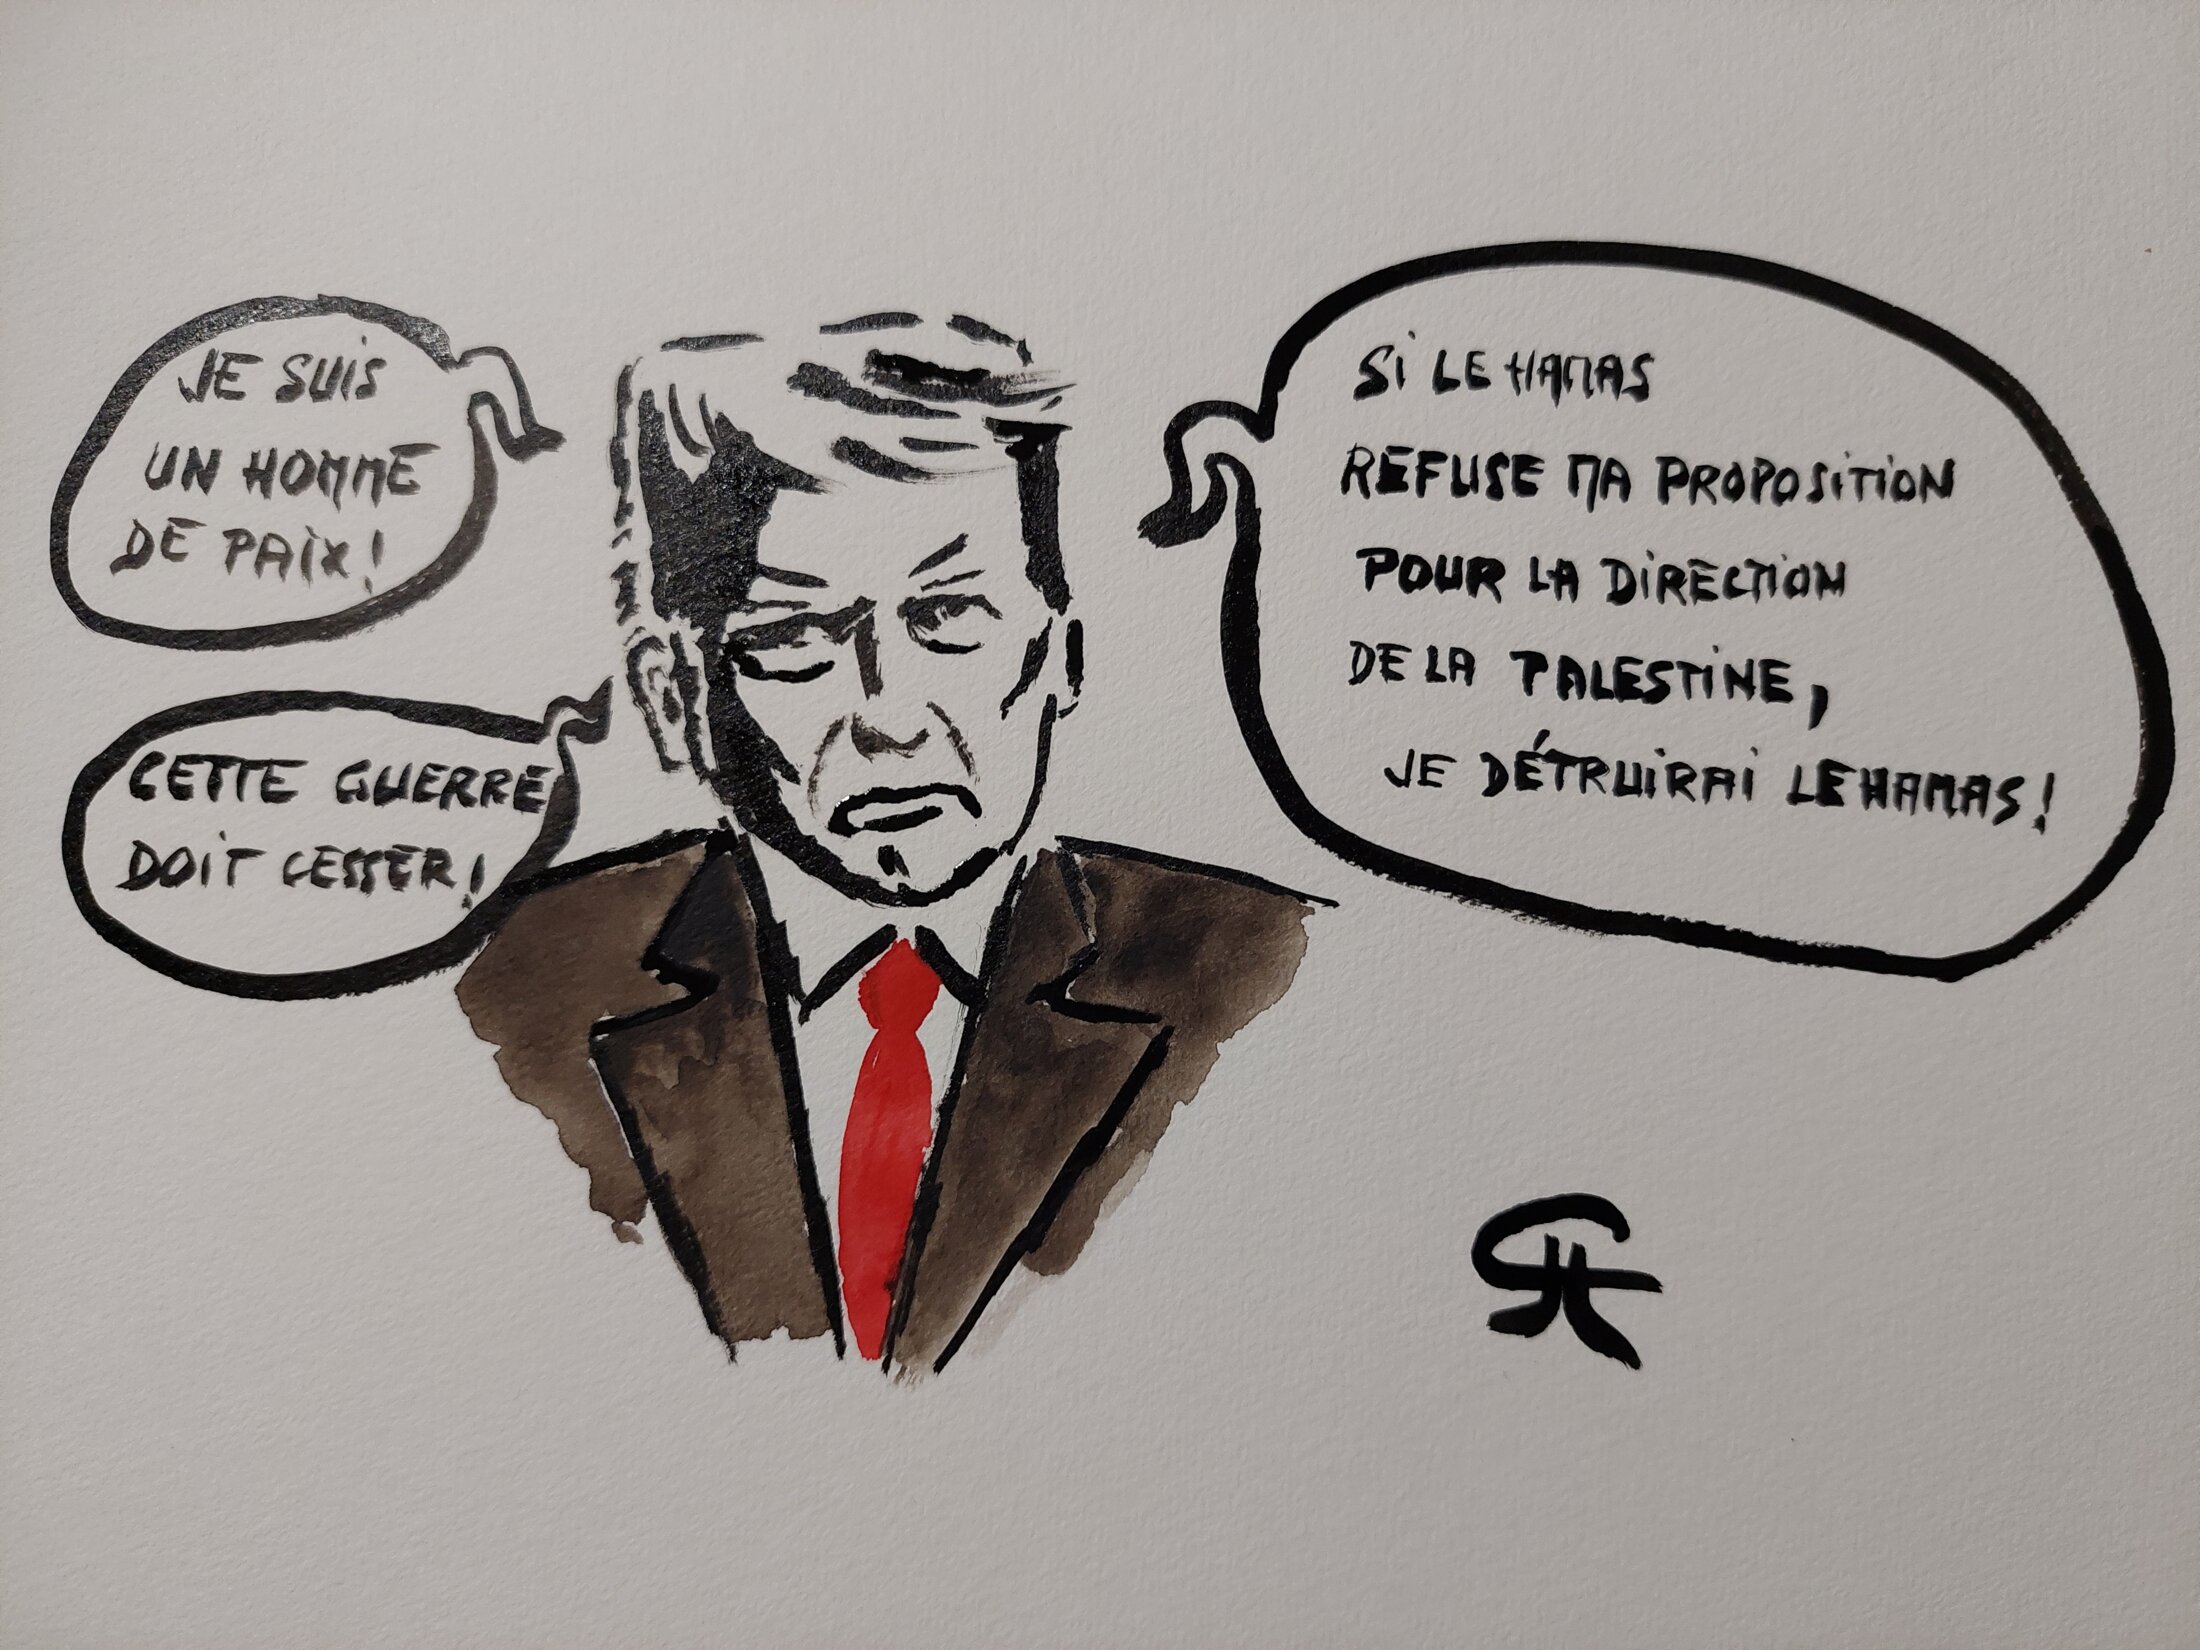 JE SUIS
UN HOMME
DE PAIX!
CETTE GUERRE
DOIT CESSER!
SI LE HAMAS
REFUSE MA PROPOSITION
POUR LA DIRECTION
DE LA PALESTINE,
JE DÉTRUIRAI LE HAMAS!